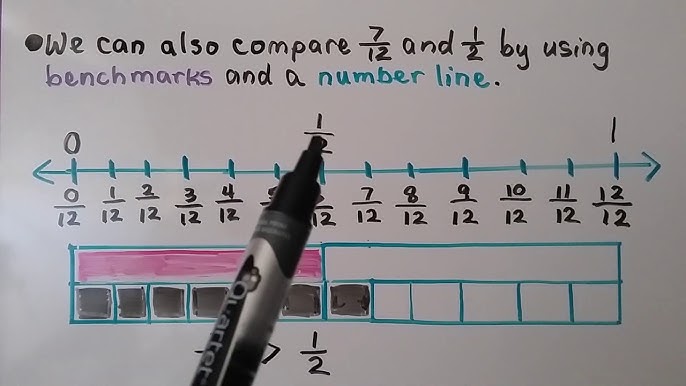 We can also compare 7/12 and 1/2 by using
benchmarks and a number line.
0 1
0/12 1/12 2/12 3/12 4/12 7/12 8/12 9/12 10/12 11/12 12/12
> 1/2
Quartet